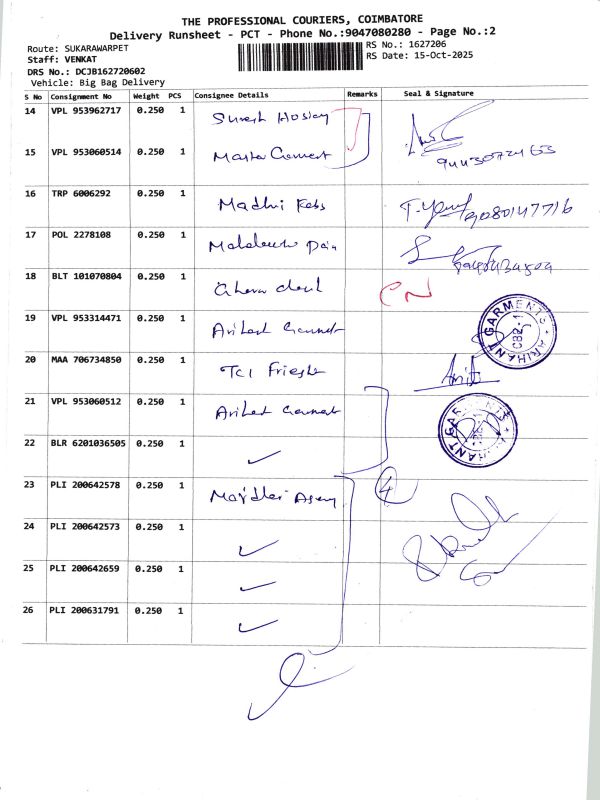 THE PROFESSIONAL COURIERS, COIMBATORE
Delivery Runsheet - PCT - Phone No.:9047080280 - Page No.:2
Route: SUKARAWARPET
RS No.: 1627206
Staff: VENKAT
RS Date: 15-Oct-2025
DRS No.: DCJB162720602
Vehicle: Big Bag Delivery
S No Consignment No Weight PCS Consignee Details Remarks Seal & Signature
14 VPL 953962717 0.250 1 Suresh
15 VPL 953060514 0.250 1 Master
16 TRP 6006292 0.250 1 Madhi 9080147716
17 POL 2278108 0.250 1
18 BLT 101070804 0.250 1 CN
19 VPL 953314471 0.250 1 Arihant GARMENTS ARIHANT
20 MAA 706734850 0.250 1 TCI
21 VPL 953060512 0.250 1 Arihant ARIHANT GARMENTS
22 BLR 6201036505 0.250 1
23 PLI 200642578 0.250 1 4
24 PLI 200642573 0.250 1
25 PLI 200642659 0.250 1
26 PLI 200631791 0.250 1